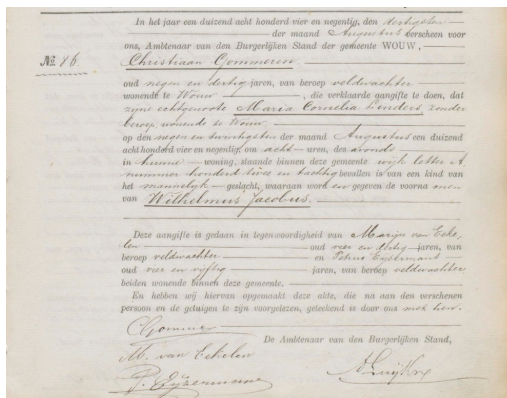 In het jaar een duizend acht honderd vier en negentig, den dertigsten
der maand Augustus verscheen voor
ons, Ambtenaar van den Burgerlijken Stand der gemeente WOUW,
No 86
Christiaan Gommeren
oud negen en dertig jaren, van beroep veldwachter
wonende te Wouw, die verklaarde aangifte te doen, dat
zijne echtgenoote Maria Cornelia Linders, zonder
beroep, wonende te Wouw
op den negen en twintigsten der maand Augustus een duizend
acht honderd vier en negentig, om acht uren, des avonds
in hunne woning, staande binnen deze gemeente wijk letter A
nummer honderd twee en tachtig bevallen is van een kind van
het mannelijk geslacht, waaraan word en gegeven de voorna men
van Wilhelmus Jacobus.
Deze aangifte is gedaan in tegenwoordigheid van Marijn van Eeke
len oud vier en dertig jaren, van
beroep veldwachter en Petrus Eijzermans
oud vier en vijftig jaren, van beroep veldwachter
beiden wonende binnen deze gemeente.
En hebben wij hiervan opgemaakt deze akte, die na aan den verschenen
persoon en de getuigen is zijn voorgelezen, geteekend is door ons met hen.
C Gommer
De Ambtenaar van den Burgerlijken Stand,
M. van Eekelen
P. Eijzermans